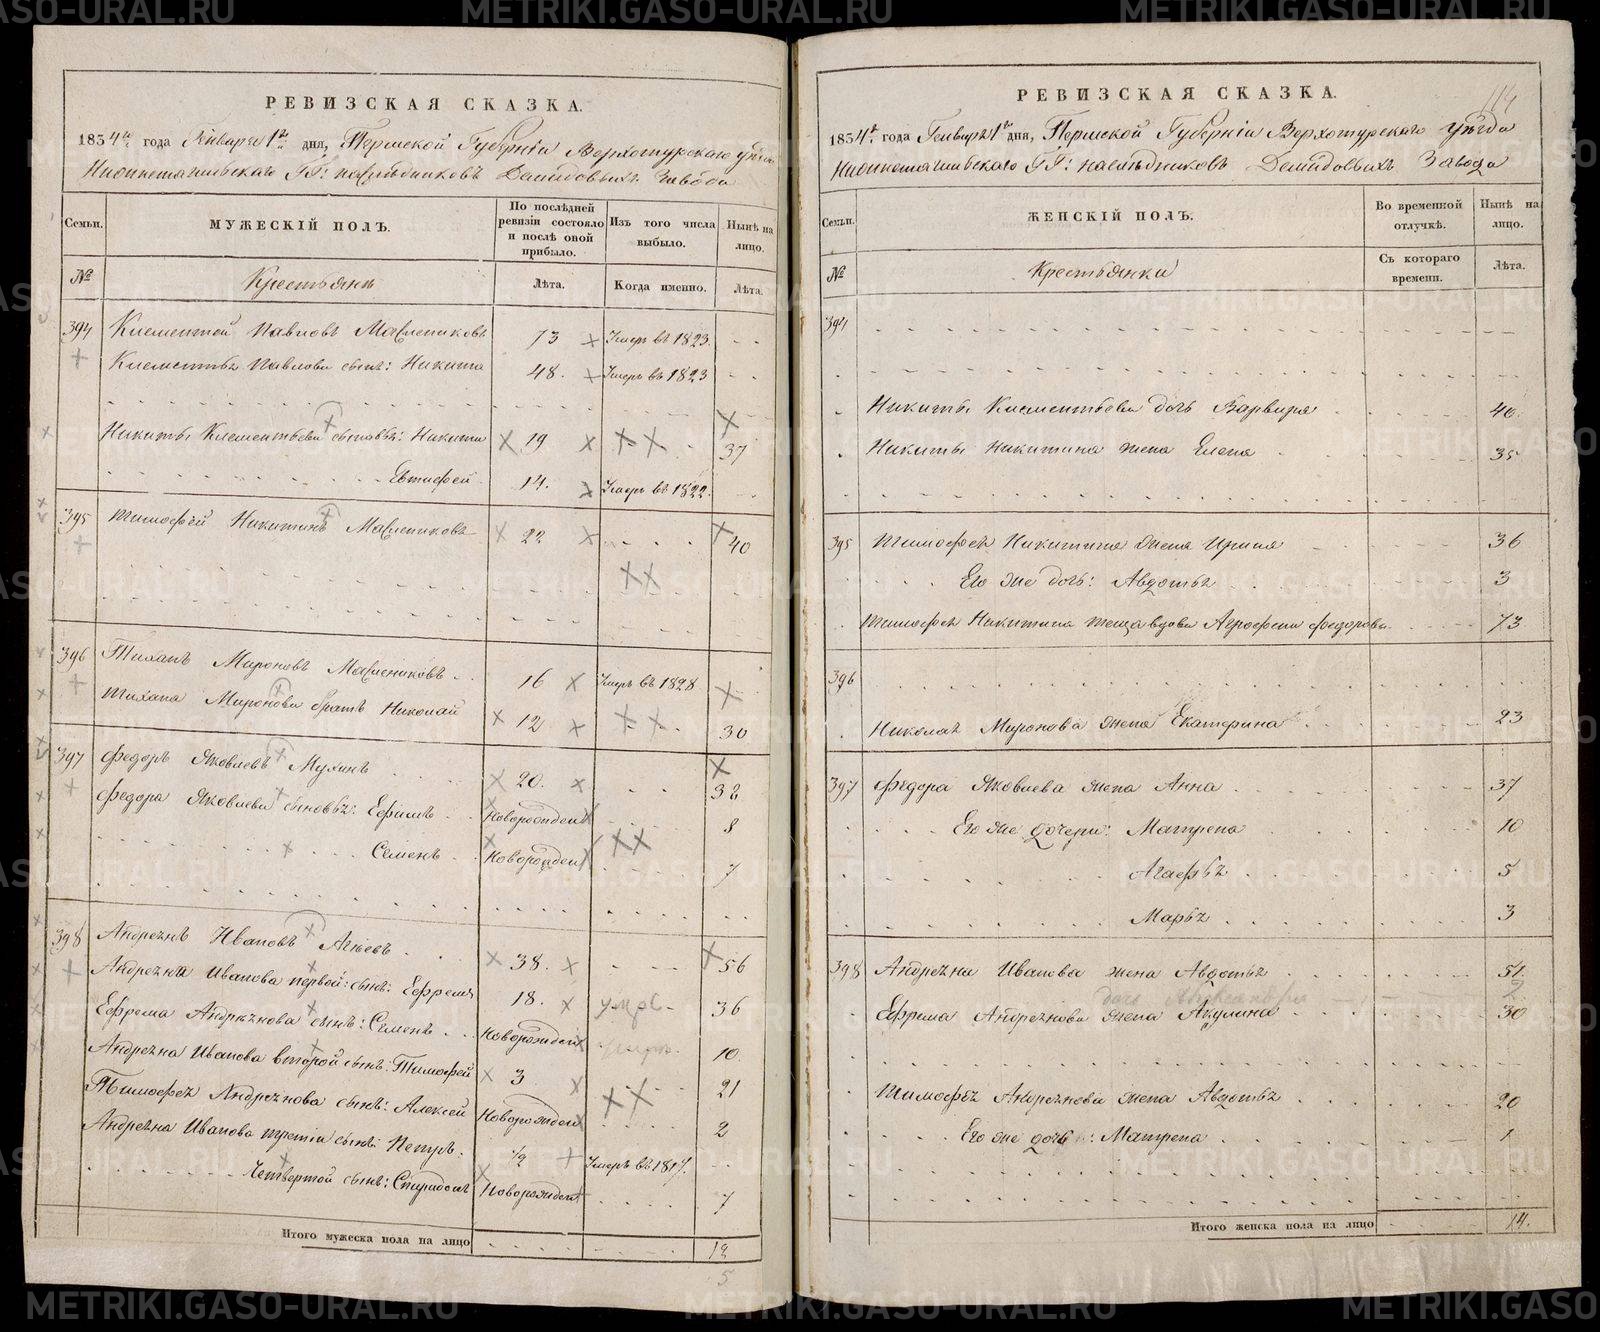 РЕВИЗСКАЯ СКАЗКА.
1834го года Генваря 1го дня, Пермской Губерніи Верхотурскаго уѣзда
Нижнетагильскаго ГГ: наслѣдниковъ Демидовыхъ Завода
Семьи. МУЖЕСКІЙ ПОЛЪ. По послѣдней ревизіи состояло и послѣ оной прибыло. Изъ того числа выбыло. Нынѣ на лицо.
№ Крестьянъ Лѣта. Когда именно. Лѣта.
394 Клементей Павловъ Маслениковъ 73 Умеръ въ 1823.
Клементья Павлова сынъ: Никита 48. Умеръ въ 1823
Никиты Клементьева сыновья: Никита 19 37
Евтифей 14. Умеръ въ 1822.
395 Тимофей Никитинъ Маслениковъ 22 40
396 Тиханъ Мироновъ Маслениковъ 16 Умеръ въ 1828
Тихана Миронова братъ Николай 12 30
397 Федоръ Яковлевъ Мухинъ 20. 38
Федора Яковлева сыновья: Ефимъ Новорожден 8
Семенъ Новорожден 7
398 Андреянъ Ивановъ Агѣевъ 38. 56
Андреяна Иванова первой: сынъ: Ефремъ 18. умре 36
Ефрема Андреянова сынъ: Семенъ Новорожден 10.
Андреяна Иванова второй сынъ: Тимофей 3 21
Тимофея Андреянова сынъ: Алексей Новорожден 2
Андреяна Иванова третій сынъ: Петръ ½ Умеръ въ 1817.
Четвертой сынъ: Спиридонъ Новорожден 7
Итого мужеска пола на лицо 12
5
114
РЕВИЗСКАЯ СКАЗКА.
1834го года Генваря 1го дня, Пермской Губерніи Верхотурскаго уѣзда
Нижнетагильскаго ГГ: наслѣдниковъ Демидовыхъ Завода
Семьи. ЖЕНСКІЙ ПОЛЪ. Во временной отлучкѣ. Нынѣ на лицо.
№ Крестьянки Съ котораго времени. Лѣта.
394
Никиты Клементьева дочь Варвара 40.
Никиты Никитина жена Елена 35
395 Тимофея Никитина жена Ирина 36
Его же дочь: Авдотья 3
Тимофея Никитина теща вдова Агрофена Федорова 73
396
Николая Миронова жена Екатерина 23
397 Федора Яковлева жена Анна 37
Его же дочери: Матрена 10
Агафья 5
Марья 3
398 Андреяна Иванова жена Авдотья 51.
дочь Александра 2
Ефрема Андреянова жена Акулина 30
Тимофея Андреянова жена Авдотья 20
Его же дочь: Матрена 1
Итого женска пола на лицо 14.
METRIKI.GASO-URAL.RU